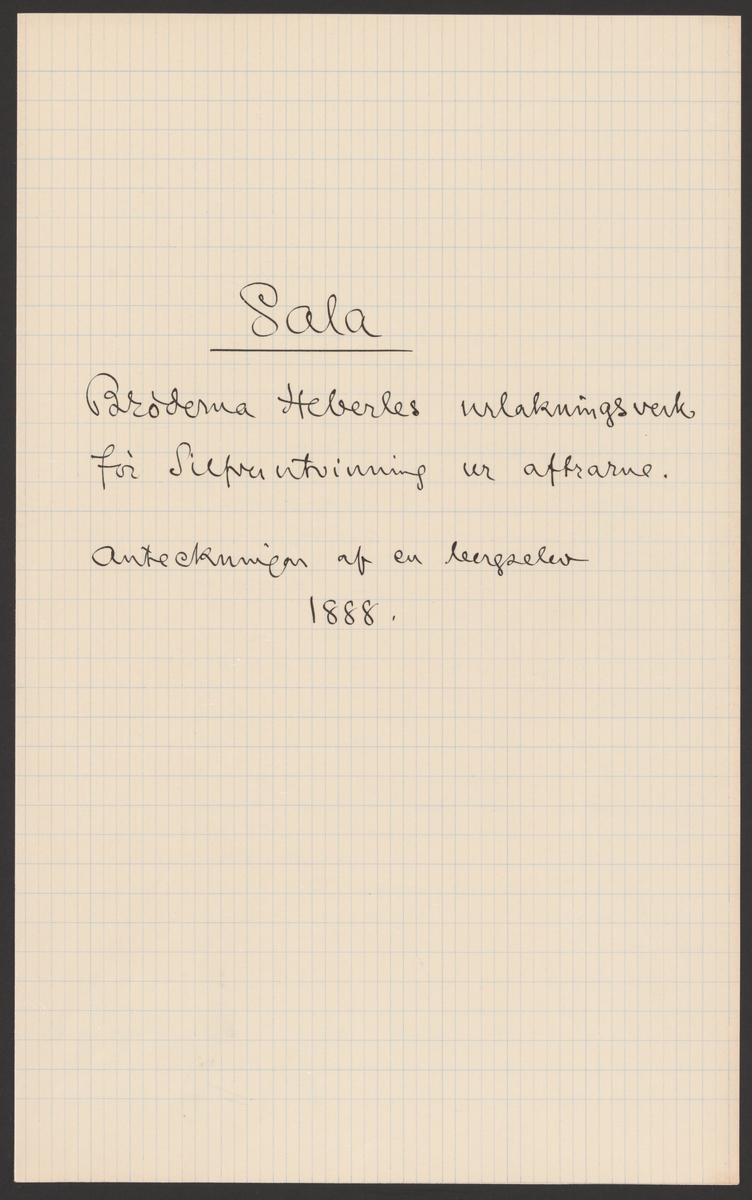 Sala
Bröderna Heberles urlakningsverk
för Silfverutvinning ur aftrarne.
Anteckningar af en bergselev
1888.